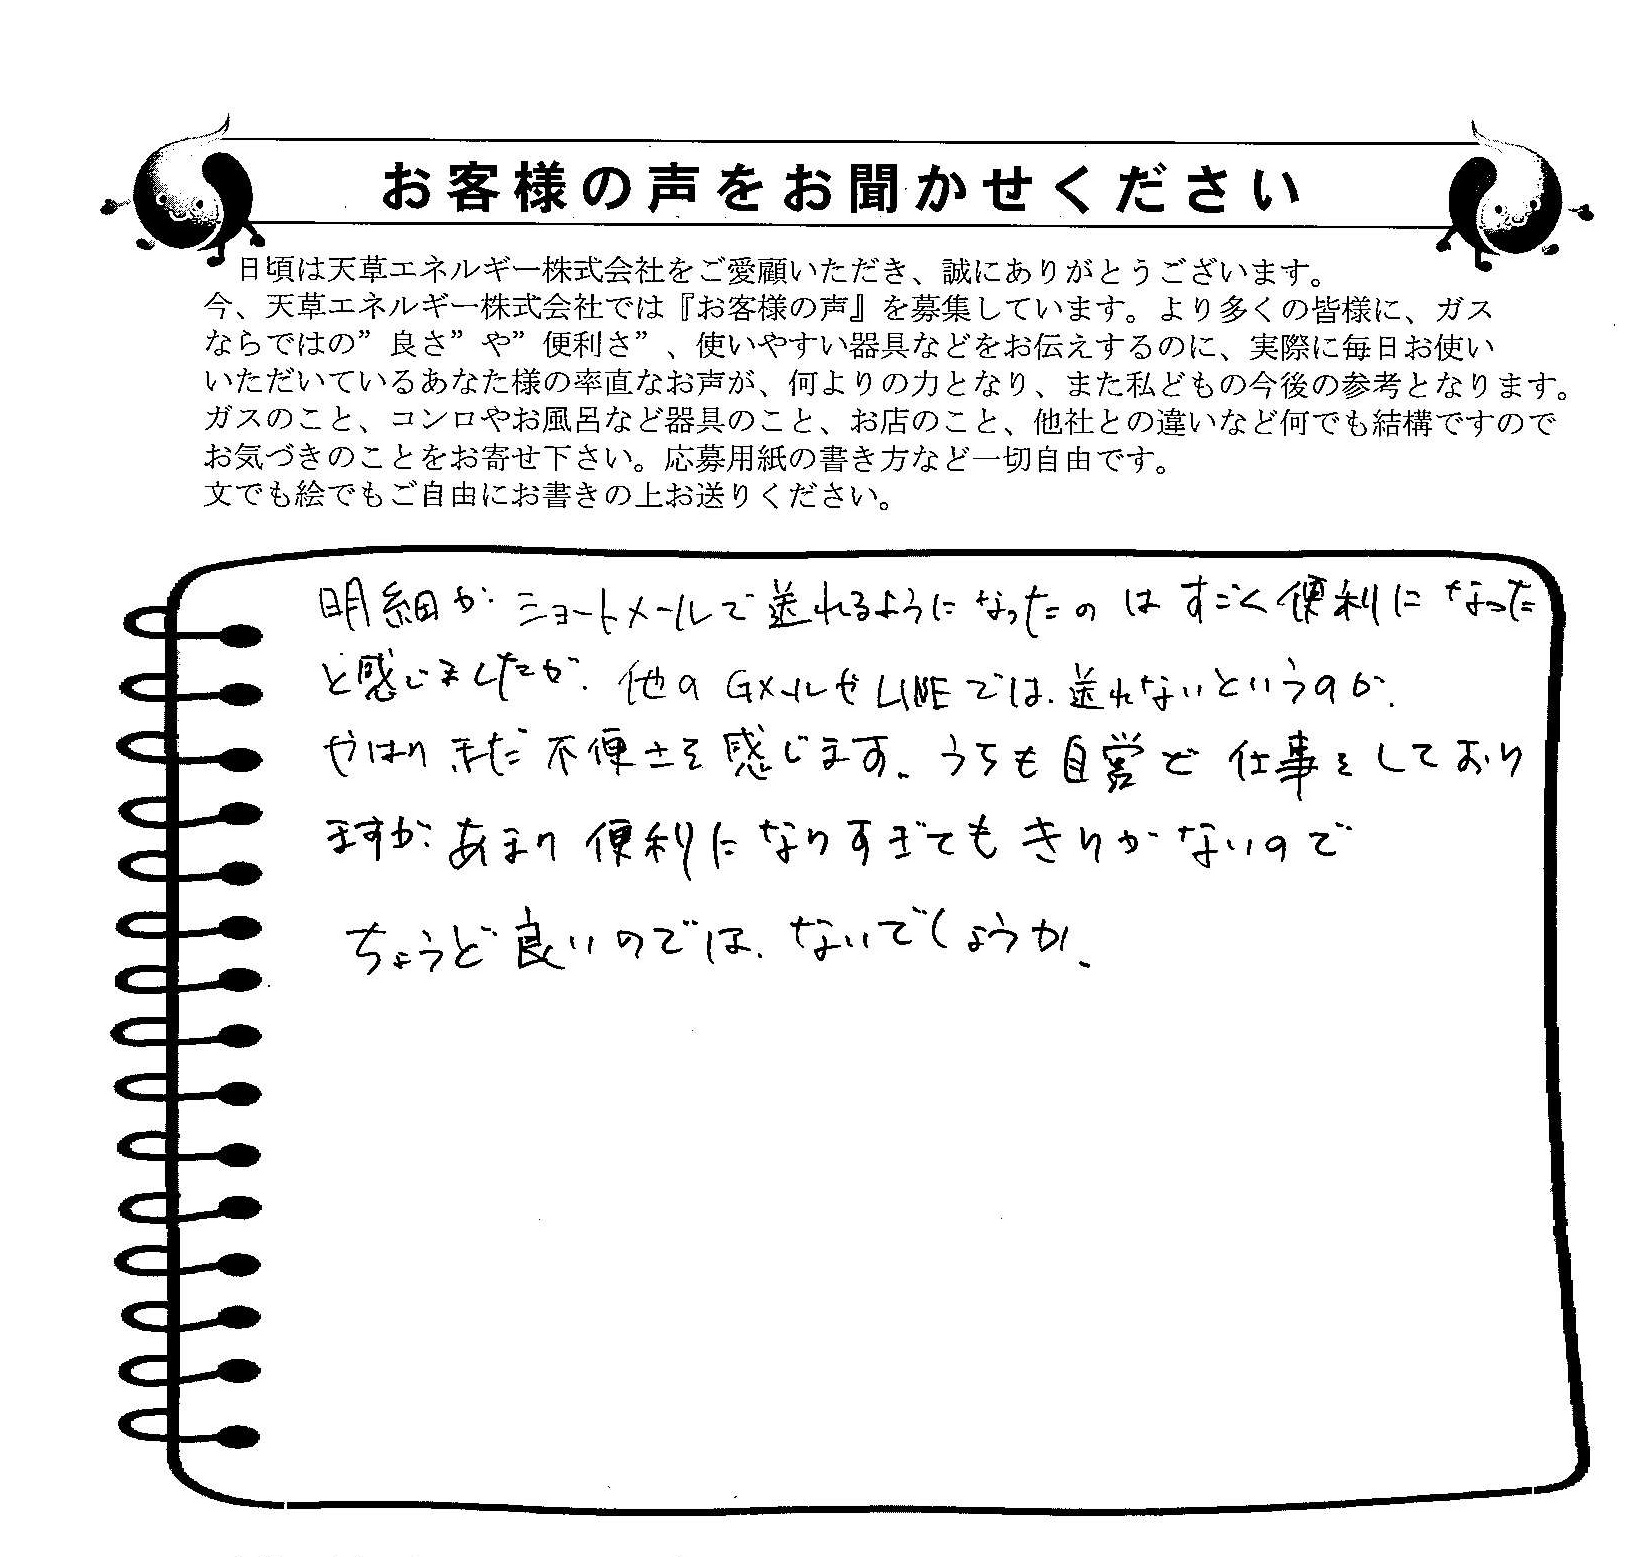 お客様の声をお聞かせください
日頃は天草エネルギー株式会社をご愛顧いただき、誠にありがとうございます。
今、天草エネルギー株式会社では『お客様の声』を募集しています。より多くの皆様に、ガス
ならではの”良さ”や”便利さ”、使いやすい器具などをお伝えするのに、実際に毎日お使い
いただいているあなた様の率直なお声が、何よりの力となり、また私どもの今後の参考となります。
ガスのこと、コンロやお風呂など器具のこと、お店のこと、他社との違いなど何でも結構ですので
お気づきのことをお寄せ下さい。応募用紙の書き方など一切自由です。
文でも絵でもご自由にお書きの上お送りください。
明細が ショートメールで送れるようになったの は すごく便利に なった
と感じましたが、他の GメールやLINEでは、送れないというのが、
やはり まだ 不便さを 感じます。うちも 自営で 仕事を しており
ますが、あまり 便利に なりすぎても きりが ないので
ちょうど良いのでは、ないでしょうか。